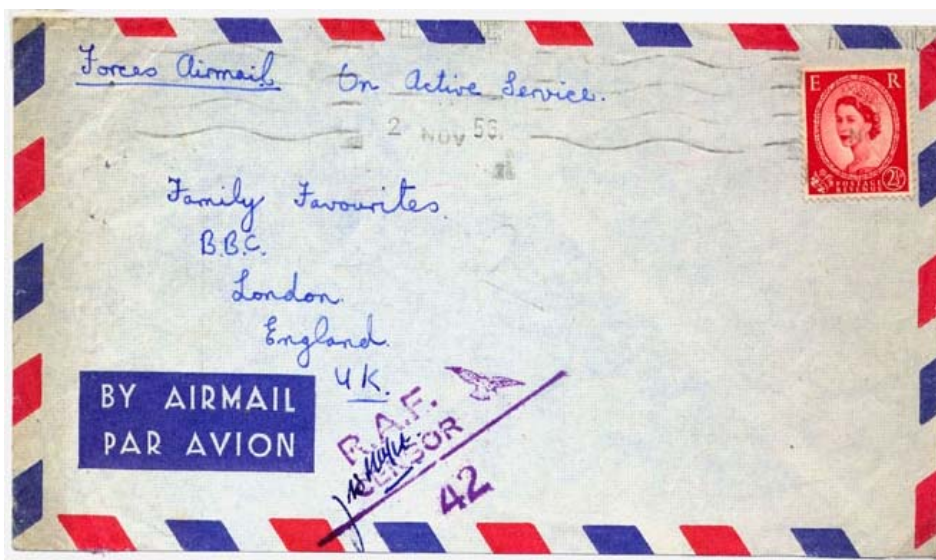 Forces Airmail On Active Service.
E R
2 NOV 56.
POSTAGE
REVENUE
2½D
Family Favourites.
B.B.C.
London.
England.
UK.
BY AIRMAIL
PAR AVION
R.A.F.
CENSOR
42